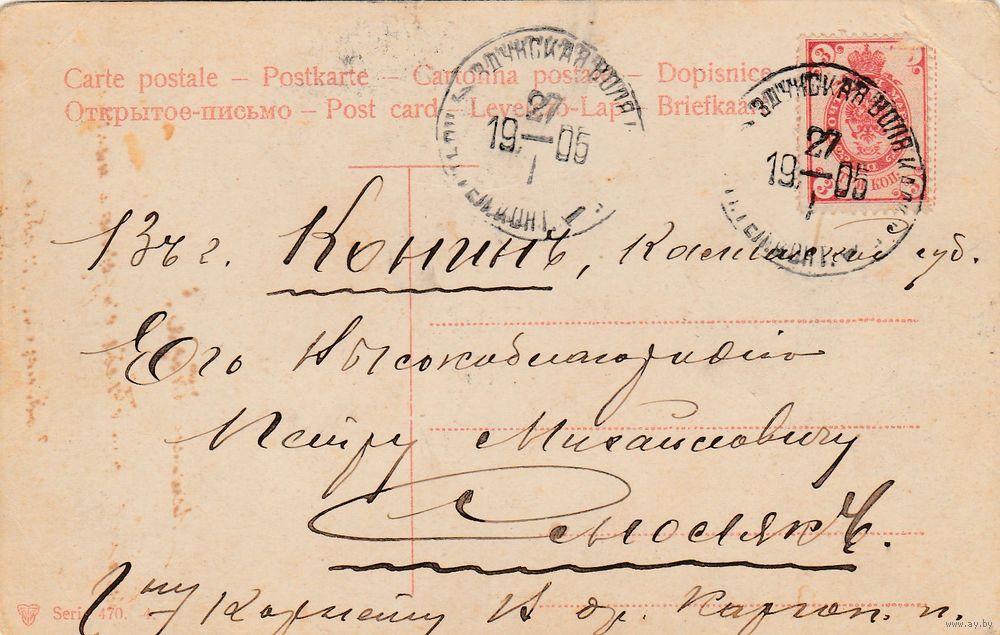 Carte postale – Postkarte – Cartolina postale – Dopisnice
Открытое-письмо – Post card – Levelező-Lap – Briefkaart
ЗДУНСКАЯ ВОЛЯ
27
19 – 05
I
ЗДУНСКАЯ ВОЛЯ
27
19 – 05
I
3
3
КОП
Въ г. Конинъ, Калишской губ.
Его Высокоблагородію
Петру Михайловичу
Смолякъ.
Корнету
др. Каргоп. п.
Serie 470. 4.
www.ay.by